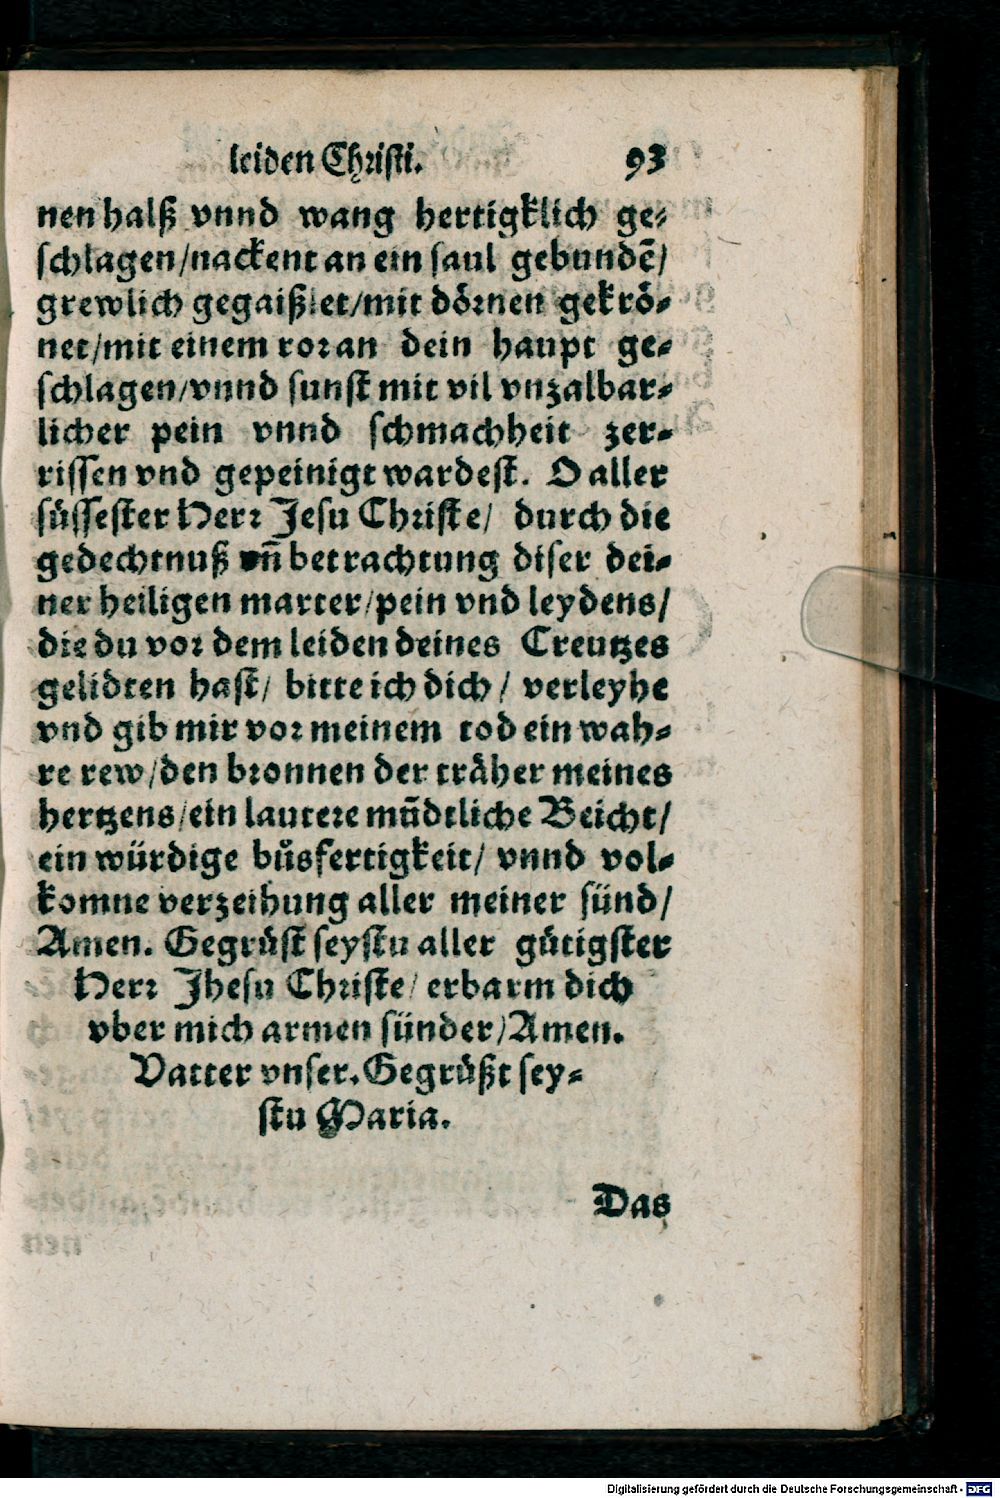 leiden Christi. 93
nen halß vnnd wang hertigklich ge-
schlagen/nackent an ein saul gebundē/
grewlich gegaißlet/mit dörnen gekrö-
net/mit einem ror an dein haupt ge-
schlagen/vnnd sunst mit vil vnzalbar-
licher pein vnnd schmachheit zer-
rissen vnd gepeinigt wardest. O aller
süssester Herr Jesu Christe/ durch die
gedechtnuß vn̄ betrachtung diser dei-
ner heiligen marter/pein vnd leydens/
die du vor dem leiden deines Creutzes
gelidten hast/ bitte ich dich/ verleyhe
vnd gib mir vor meinem tod ein wah-
re rew/den bronnen der träher meines
hertzens/ein lautere mūdtliche Beicht/
ein würdige bůsfertigkeit/ vnnd vol-
komne verzeihung aller meiner sünd/
Amen. Gegrůst seystu aller gütigster
Herr Jhesu Christe/ erbarm dich
vber mich armen sünder/Amen.
Vatter vnser. Gegrůßt sey-
stu Maria.
Das
Digitalisierung gefördert durch die Deutsche Forschungsgemeinschaft - DFG